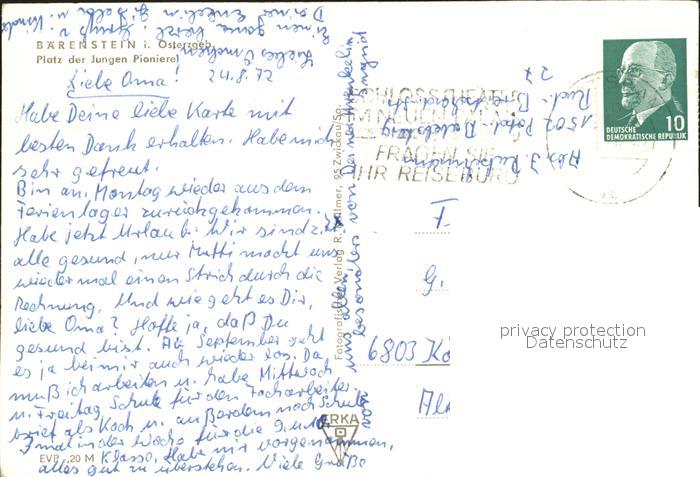 BÄRENSTEIN i. Osterzgeb.
Platz der Jungen Pioniere
Liebe Oma! 24.8.72
Habe Deine liebe Karte mit
besten Dank erhalten. Habe mich
sehr gefreut.
Bin am Montag wieder aus dem
Ferienlager zurückgekommen.
Habe jetzt Urlaub. Wir sind
alle gesund, nur Mutti macht uns
wieder mal einen Strich durch die
Rechnung. Und wie geht es Dir,
liebe Oma? Hoffe ja, daß Du
gesund bist. Ab September geht
es ja bei mir auch wieder los. Da
muß ich arbeiten u. habe Mittwoch
u. Freitag Schule für den Facharbeiter-
brief als Koch u. außerdem noch Schule
3 mal in der Woche für die 9. und
Klasse. Habe mir vorgenommen,
alles gut zu überstehen. Viele Grüße
von uns allen
besonders von Deiner
EVP -.20 M
Fotografie u. Verlag R. 95 Zwickau/Sa.
ERKA
SCHLOSSTHEATER
IM NEUEN
FRAGEN SIE
IHR REISEBÜRO
DEUTSCHE
DEMOKRATISCHE REPUBLIK
10
Abs. J.
1502 Potsd.-Babelsberg
Rud.-Breitscheid-Str.
27
F
G.
6803 Kö
Al
privacy protection
Datenschutz